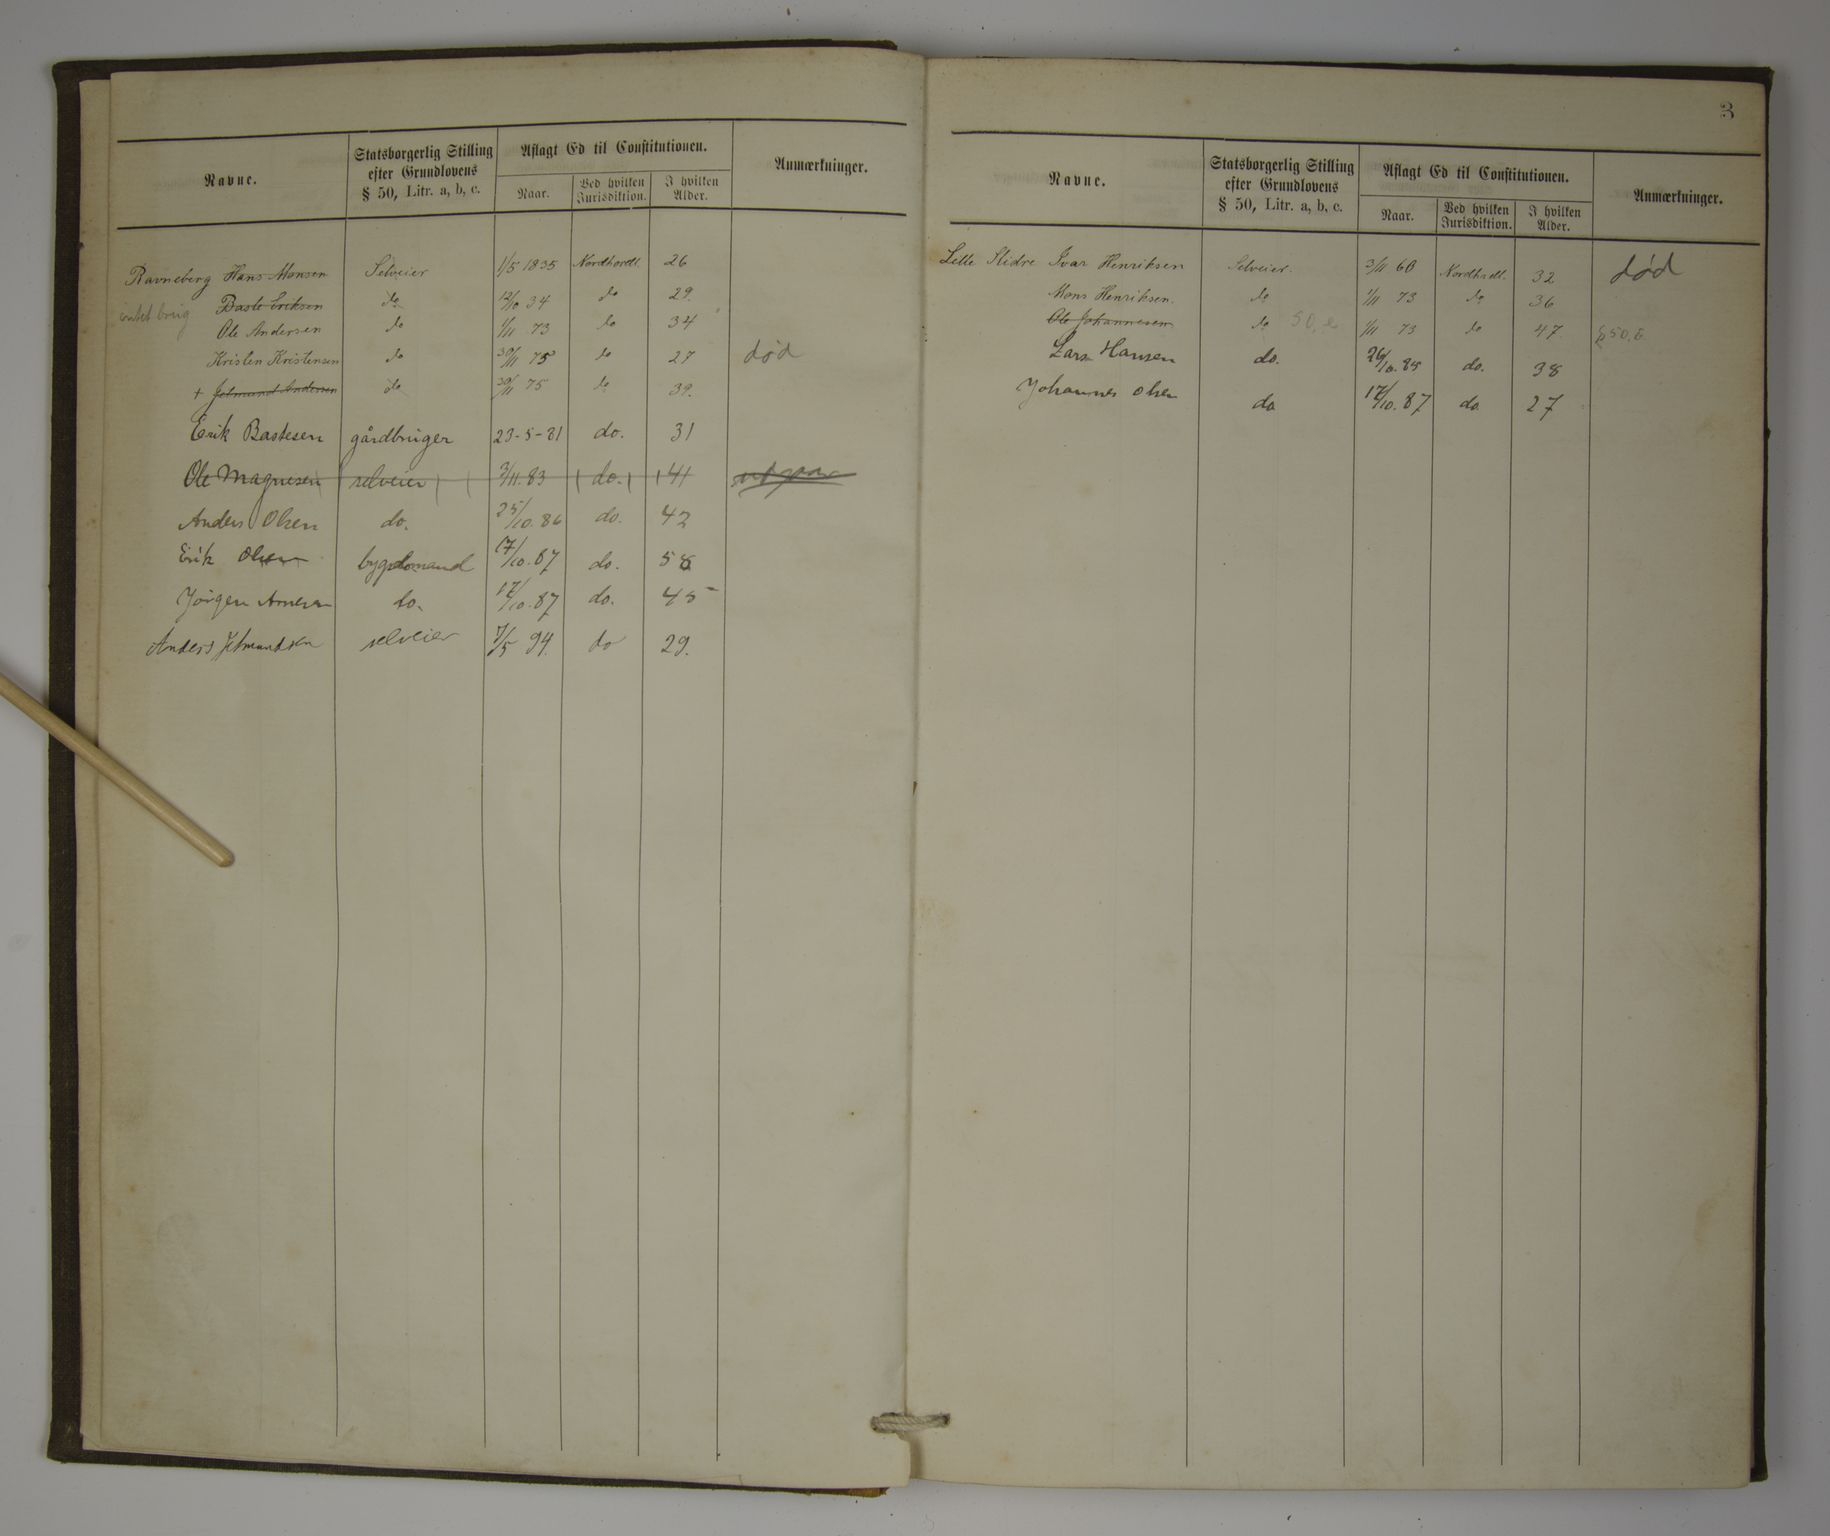 Navne.
Statsborgerlig Stilling
efter Grundlovens
§ 50, Litr. a, b, c.
Aflagt Ed til Constitutionen.
Naar.
Ved hvilken
Jurisdiktion.
I hvilken
Alder.
Anmærkninger.
Ravneberg Hans Monsen Selveier 1/5 1835 Nordhordl. 26
intet brug Baste Eriksen do 29.
Ole Andersen do 1/11 73 do 34
Kristen Kristensen do 30/11 75 do 27 død
+ Jetmund Andersen do 30/11 75 do 39.
Erik Bastesen gårdbruger 23-5-81 do. 31
Ole Magnesen selveier 3/11. 83 do. 41
Anders Olsen do. 25/10. 86 do. 42
Erik Olsen bygselmand 17/10. 87 do. 58
Jørgen do. 17/10. 87 do. 45
Anders Jetmundsen selveier 7/5 94. do 29.
3
Navne.
Statsborgerlig Stilling
efter Grundlovens
§ 50, Litr. a, b, c.
Aflagt Ed til Constitutionen.
Naar.
Ved hvilken
Jurisdiktion.
I hvilken
Alder.
Anmærkninger.
Lille Ivar Henriksen Selveier. 3/11 60 Nordhrdl. 32 død
Mons Henriksen. do 1/11 73 do 36
Ole Johannesen do 50, 1/11 73 do 47. § 50,
Lars Hansen do. 26/10. 85 do. 38
Johannes Olsen do 17/10. 87 do. 27